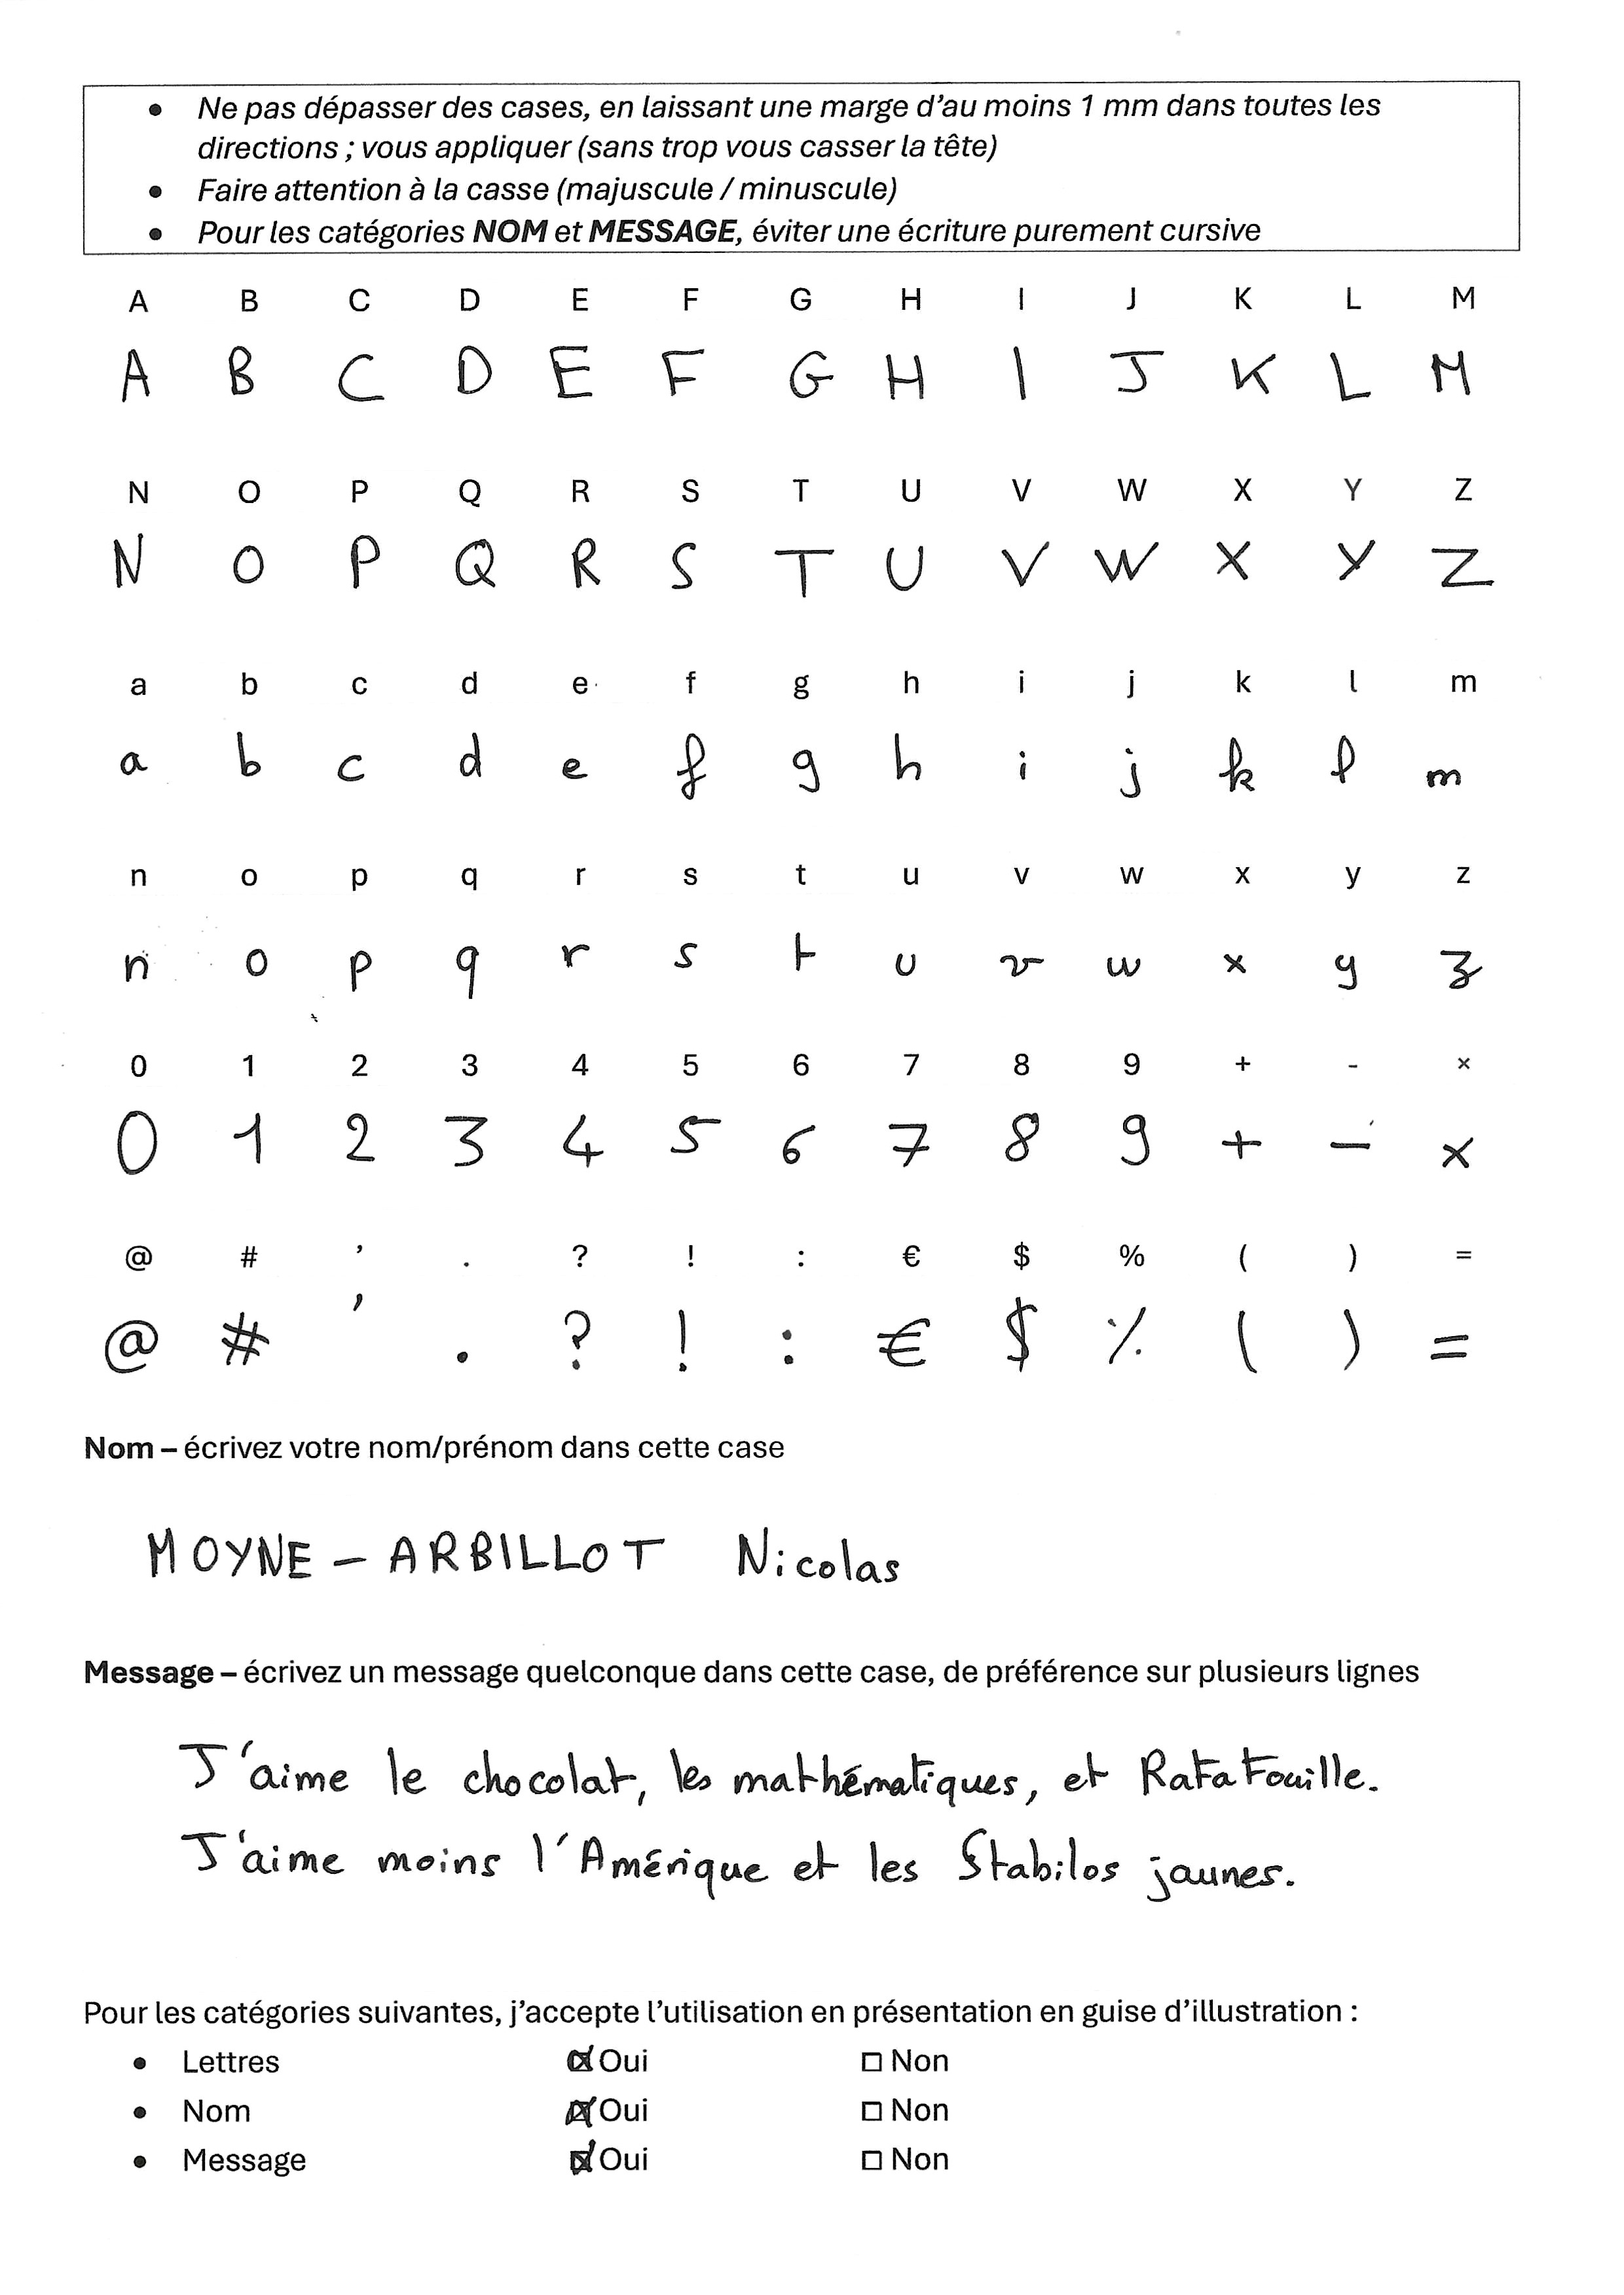 • Ne pas dépasser des cases, en laissant une marge d’au moins 1 mm dans toutes les
directions ; vous appliquer (sans trop vous casser la tête)
• Faire attention à la casse (majuscule / minuscule)
• Pour les catégories NOM et MESSAGE, éviter une écriture purement cursive
A B C D E F G H I J K L M
A B C D E F G H I J K L M
N O P Q R S T U V W X Y Z
N O P Q R S T U V W X Y Z
a b c d e f g h i j k l m
a b c d e f g h i j k l m
n o p q r s t u v w x y z
n o p q r s t u v w x y z
0 1 2 3 4 5 6 7 8 9 + - ×
0 1 2 3 4 5 6 7 8 9 + - ×
@ # ’ . ? ! : € $ % ( ) =
@ # ’ . ? ! : € $ % ( ) =
Nom – écrivez votre nom/prénom dans cette case
MOYNE - ARBILLOT Nicolas
Message – écrivez un message quelconque dans cette case, de préférence sur plusieurs lignes
J'aime le chocolat, les mathématiques, et Ratatouille.
J'aime moins l'Amérique et les Stabilos jaunes.
Pour les catégories suivantes, j’accepte l’utilisation en présentation en guise d’illustration :
• Lettres ☒ Oui ☐ Non
• Nom ☒ Oui ☐ Non
• Message ☒ Oui ☐ Non